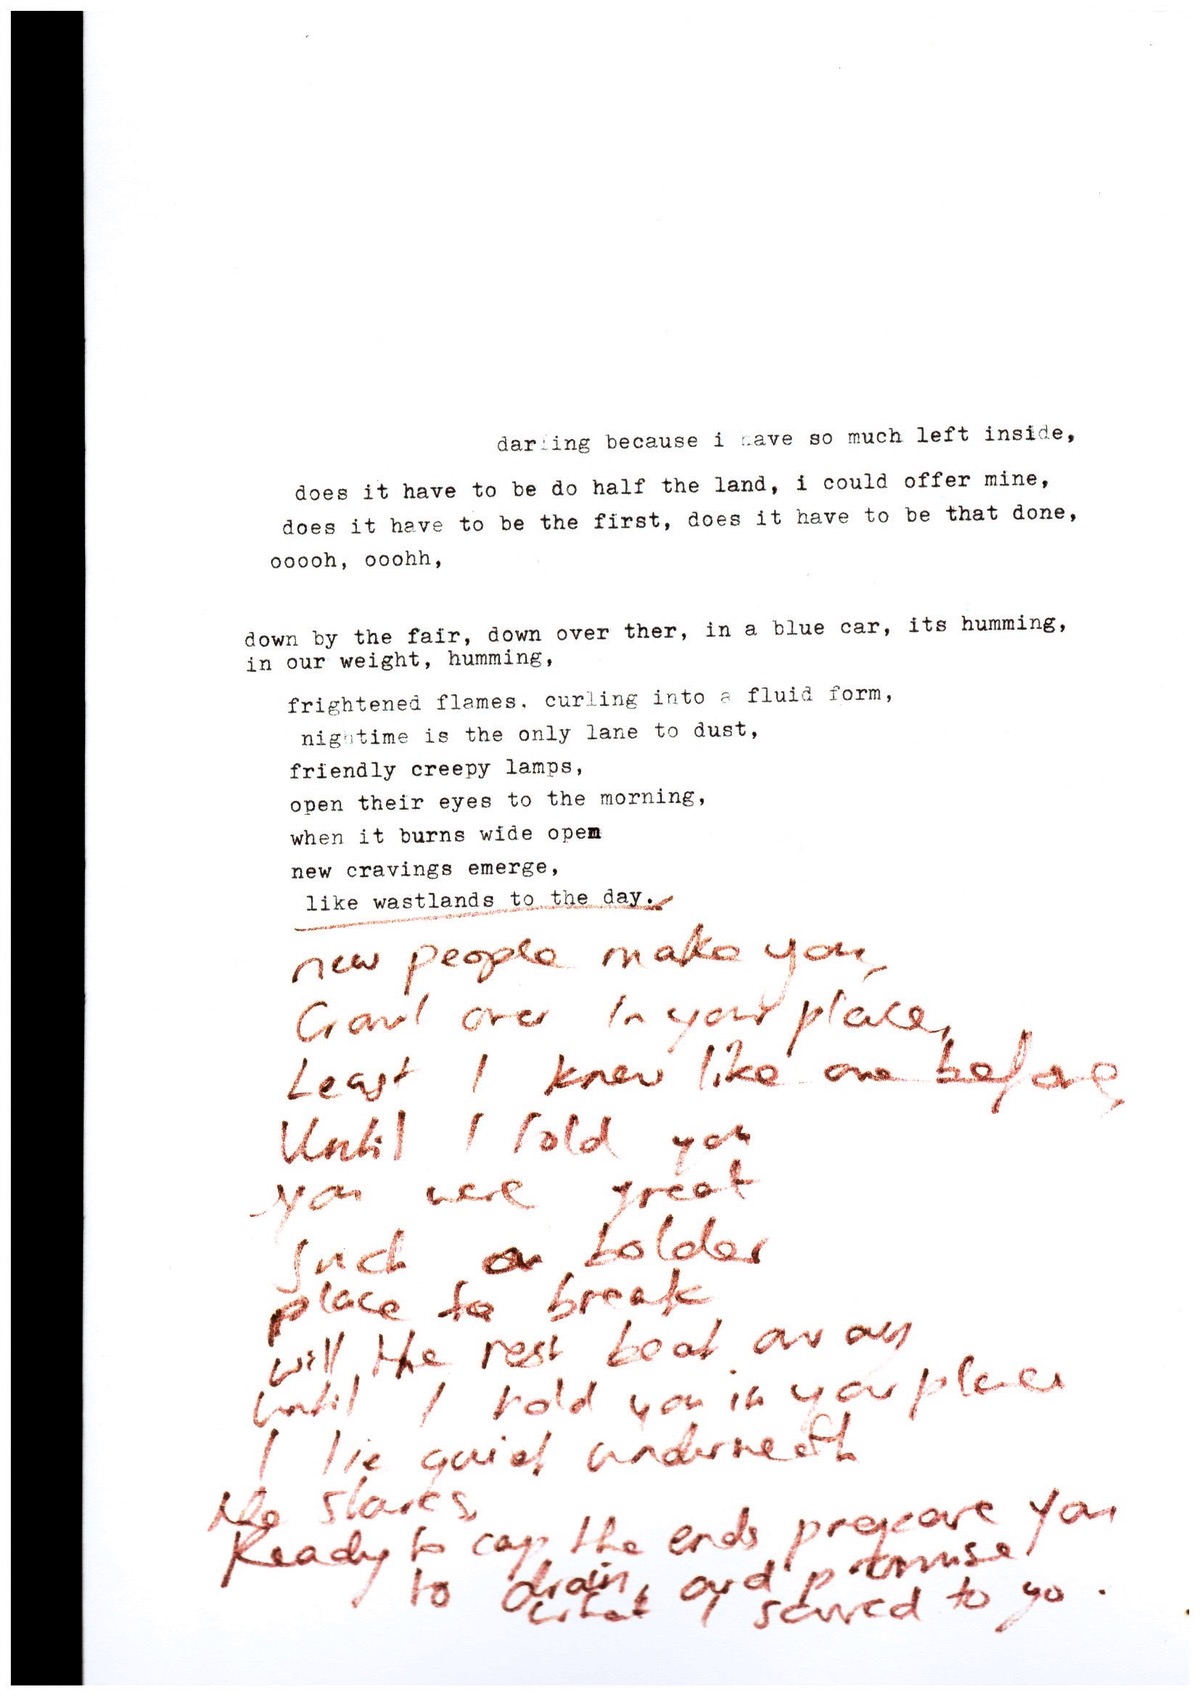 darling because i have so much left inside,
does it have to be do half the land, i could offer mine,
does it have to be the first, does it have to be that done,
ooooh, ooohh,
down by the fair, down over ther, in a blue car, its humming,
in our weight, humming,
frightened flames. curling into a fluid form,
nightime is the only lane to dust,
friendly creepy lamps,
open their eyes to the morning,
when it burns wide open
new cravings emerge,
like wastlands to the day.
new people make you,
Crawl over in your place,
Least I knew like one before,
Until I told you
you were great
Such a bolder
place to break
will the rest beat away
until I told you in your places
I lie quiet underneath
the stares,
Ready to cap the ends prepare you
to drain, and promise
what I saved to go.